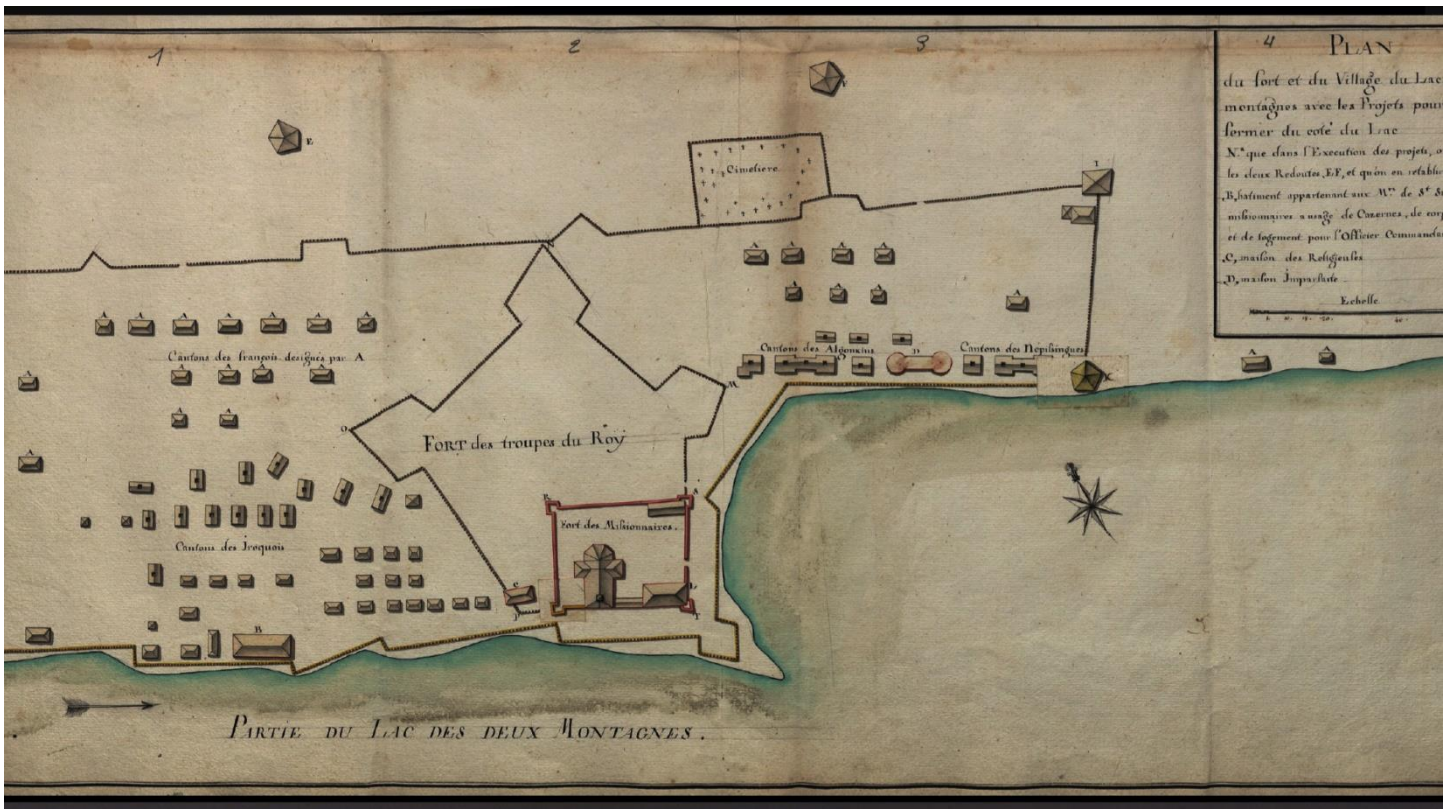 1
2
3
4
PLAN
du fort et du Village du Lac
montagnes avec les Projets pour
fermer du coté du Lac
N.ª que dans l'Execution des projets, o
les deux Redoutes, E.F, et qu'on en retablir
.B, batiment appartenant aux M.rs de S.t S
missionnaires a usage de Cazernes, de corp
et de logement pour l'Officier Commandan
.C, maison des Religieuses
.D, maison Imparfaite
Echelle
E
Cimetiere
I
A A A A
A A A
A
A A A A A A A
Cantons des françois designés par A
A
A A A A
A A
A
Cantons des Algonkins
D
Cantons des Nepissingues
A A
M
K
O
FORT des troupes du Roy
R
S
Fort des Missionnaires.
Cantons des Iroquois
C
L
P
T
B
PARTIE DU LAC DES DEUX MONTAGNES.